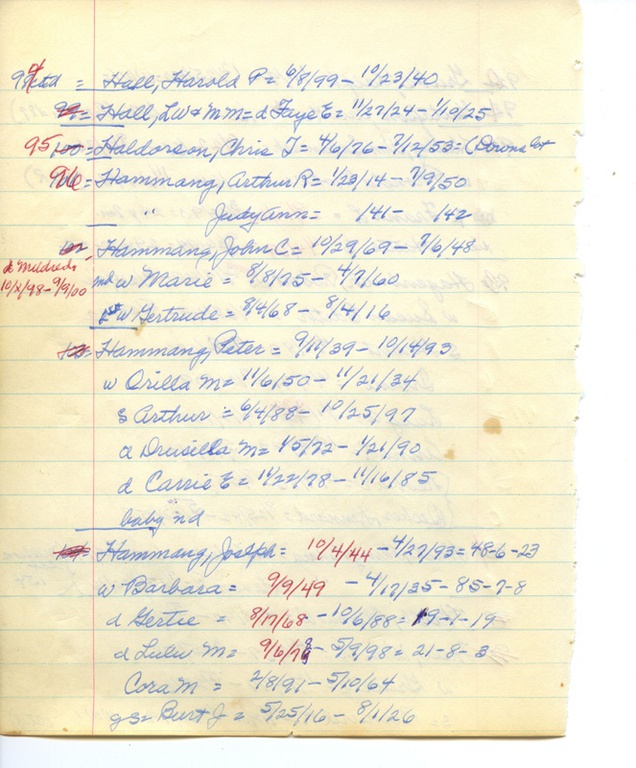 94 = Hall, Harold P = 6/8/99 - 10/23/40
= Hall, LW & MM = d Faye E = 11/27/24 - 1/10/25
95 = Haldorson, Chris T = 4/6/76 - 7/12/53 = (Downs lot
96 = Hammang, Arthur R = 1/23/14 - 7/9/50
" Judy Ann = 1/41 - 1/42
Hammang, John C = 10/29/69 - 7/6/48
d Mildred
- 9/9/00
2nd w Marie = 8/8/75 - 4/7/60
1st w Gertrude = 8/4/68 - 8/4/16
Hammang, Peter = 9/11/39 - 10/14/93
w Orilla M = 11/6/50 - 11/21/34
s Arthur = 6/4/88 - 10/25/97
d Drusilla M = 1/5/72 - 1/21/90
d Carrie E = 11/22/78 - 11/16/85
baby nd
Hammang, Joseph = 10/4/44 - 4/27/93 = 48-6-23
w Barbara = 9/9/49 - 4/17/35 - 85-7-8
d Gertie = 8/17/68 - 10/6/88 = 19-1-19
d Lulu M = 9/6/ - 5/9/98 = 21-8-3
Cora M = 2/8/91 - 5/10/64
gs = Burt J = 5/25/16 - 8/1/26